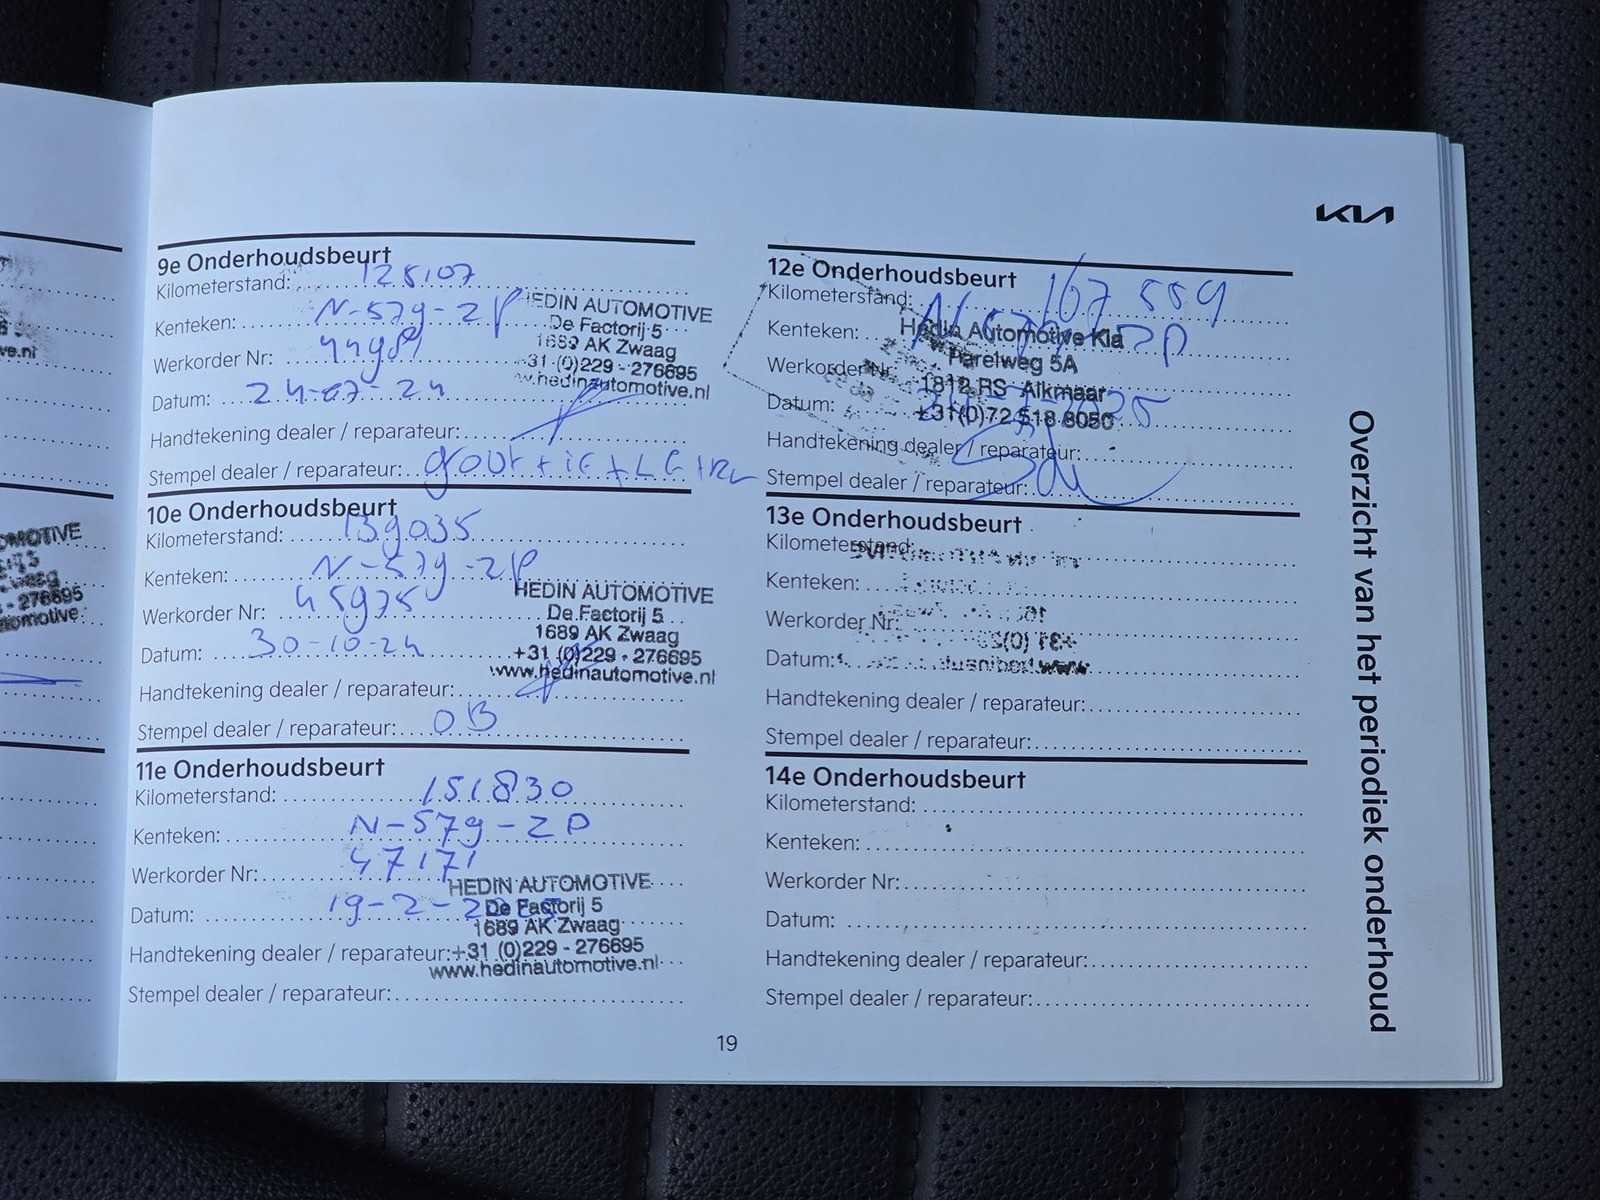 KIA
9e Onderhoudsbeurt
Kilometerstand: 128107
Kenteken: N-579-2P
Werkorder Nr: 44981
Datum: 24-07-24
Handtekening dealer / reparateur:
Stempel dealer / reparateur:
HEDIN AUTOMOTIVE
De Factorij 5
1689 AK Zwaag
+31 (0)229 - 276695
www.hedinautomotive.nl
10e Onderhoudsbeurt
Kilometerstand: 139035
Kenteken: N-579-2P
Werkorder Nr: 45975
Datum: 30-10-24
Handtekening dealer / reparateur:
Stempel dealer / reparateur: OB
HEDIN AUTOMOTIVE
De Factorij 5
1689 AK Zwaag
+31 (0)229 - 276695
www.hedinautomotive.nl
11e Onderhoudsbeurt
Kilometerstand: 151830
Kenteken: N-579-2P
Werkorder Nr: 47171
Datum: 19-2-2025
Handtekening dealer / reparateur:
Stempel dealer / reparateur:
HEDIN AUTOMOTIVE
De Factorij 5
1689 AK Zwaag
+31 (0)229 - 276695
www.hedinautomotive.nl
12e Onderhoudsbeurt
Kilometerstand: 167 559
Kenteken: N-579-2P
Werkorder Nr:
Datum:
Handtekening dealer / reparateur:
Stempel dealer / reparateur:
Hedin Automotive Kia
Parelweg 5A
1812 RS Alkmaar
+31(0)72 518 8050
13e Onderhoudsbeurt
Kilometerstand:
Kenteken:
Werkorder Nr:
Datum:
Handtekening dealer / reparateur:
Stempel dealer / reparateur:
14e Onderhoudsbeurt
Kilometerstand:
Kenteken:
Werkorder Nr:
Datum:
Handtekening dealer / reparateur:
Stempel dealer / reparateur:
Overzicht van het periodiek onderhoud
19